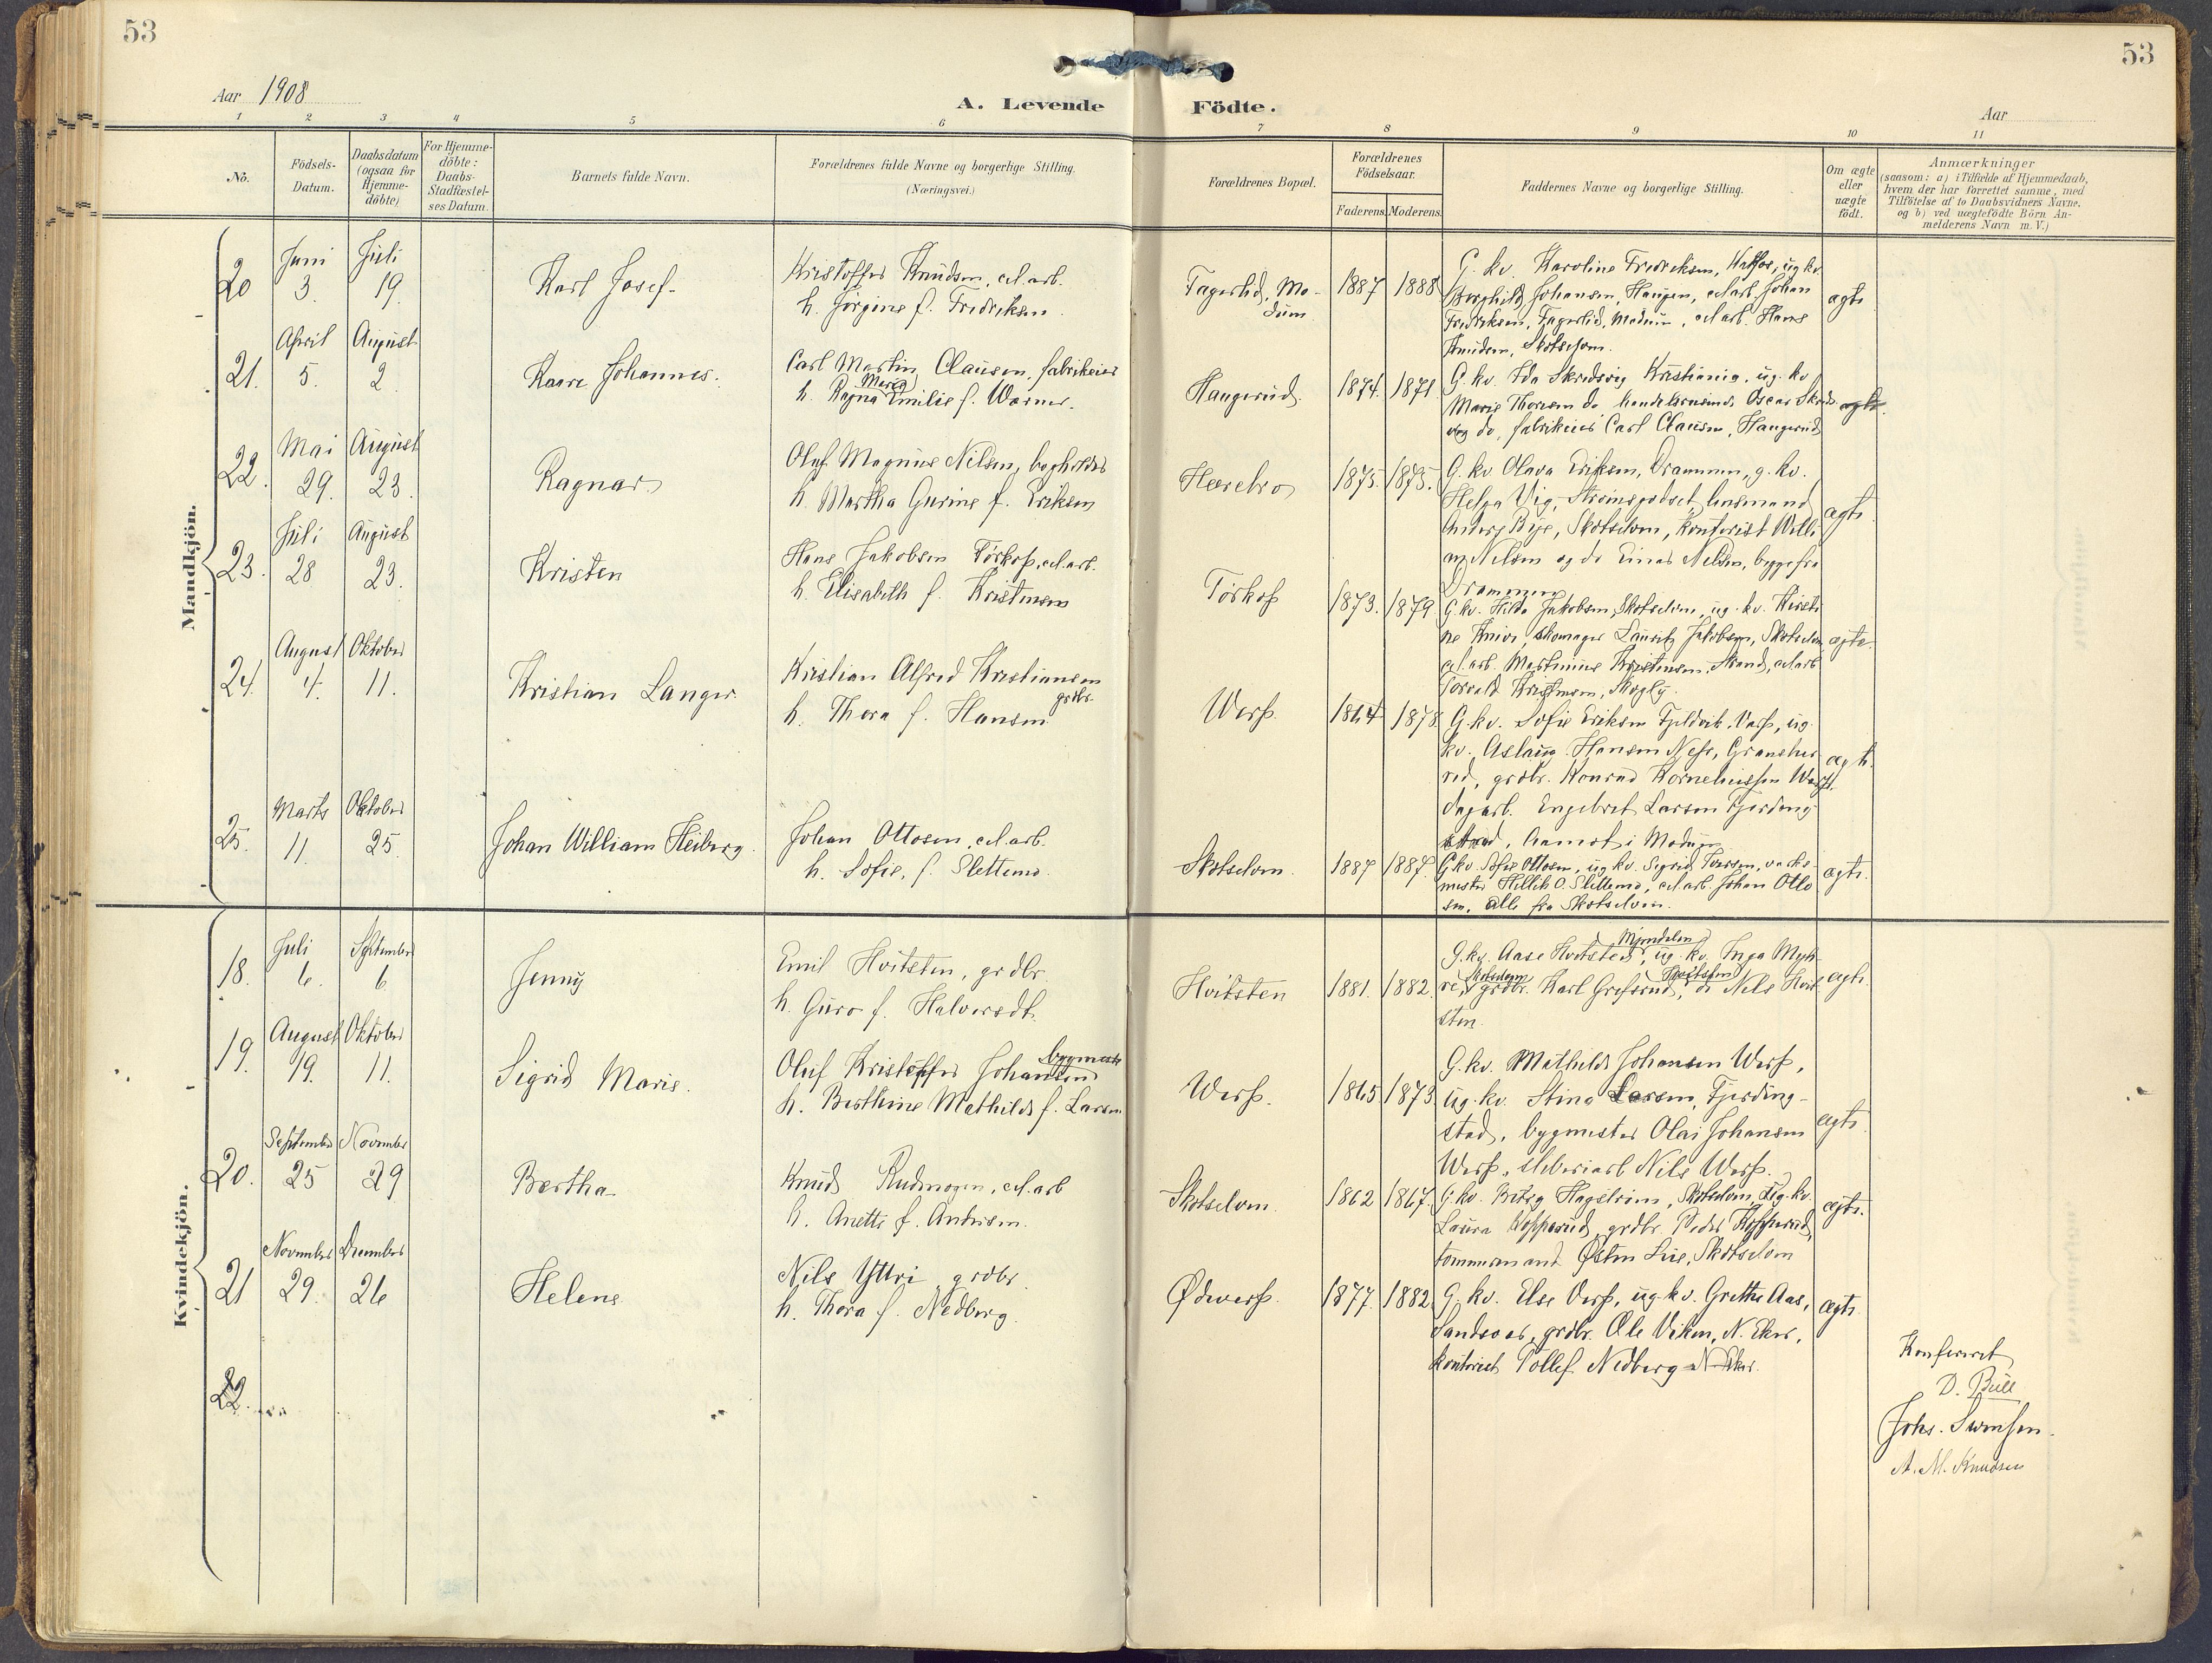 53
53
Aar 1908
A. Levende Födte.
Aar
1 2 3 4 5 6 7 8 9 10 11
No.
Födsels-Datum.
Daabsdatum (ogsaa for Hjemme-döbte)
For Hjemme-döbte: Daabs-Stadfæstel-ses Datum.
Barnets fulde Navn.
Forældrenes fulde Navne og borgerlige Stilling.
(Næringsvei.)
Forældrenes Bopæl.
Forældrenes Födselsaar.
Faderens. Moderens.
Faddernes Navne og borgerlige Stilling.
Om ægte eller uægte födt.
Anmærkninger
(saasom: a) i Tilfælde af Hjemmedaab,
hvem der har forrettet samme, med
Tilföielse af to Daabsvidners Navne.
og b) ved uægtefödte Börn An-
melderens Navn m. V.)
Mandkjön.
20 Juni 3. Juli 19. Karl Josef.
Kristoffer Knudsen, cel.arb.
h. Jörgine f. Fredriksen
Fagerlid, Mo-
dum
1887 1888
G. kv. Karoline Fredriksen, ug kv
Borghild Johansen, Haugen, cel.arb. Johan
Fredriksen, Fagerlid, Modum, cel.arb. Hans
Knudsen, Skotselven.
ægte
21. April 5. August 2. Kaare Johannes.
Carl Martin Clausen, fabrikeier
h. Ragna Maria Emilie f. Warner.
Haugerud. 1874. 1871
G. kv. Ida Skredsvig Kristiania, ug. kv
Marie Thoresen do. Oscar Skreds-
vig do, fabrikeier Carl Clausen, Haugerud
ægte.
22. Mai 29. August 23. Ragnar
Oluf Magnus Nilsen, bogholder
h. Martha Gurine f. Eriksen
Hærebro 1875. 1875.
G. kv Olava Eriksen, Drammen, g. kv.
Helga Vig, Strömsgodset, lensmand
Anders Bye, Skotselven, kontorist Willi-
am Nilsen og do Einar Nilsen, begge fra
Drammen
ægte
23. Juli 28 August 23. Kristen
Hans Jakobsen Törkop, cel.arb.
h. Elisabeth f. Kristensen
Törkop 1873. 1879
G. kv. Hilda Jakobsen, Skotselven, ug. kv. Kirsti-
ne Knive, skomager Lauritz Jakobsen, Skotselven
cel.arb. Martinius Kristensen, Strand, cel.arb
Torvald Kristensen, Skogly.
ægte
24. August 4. Oktober 11. Kristian Langer
Kristian Alfred Kristiansen
grdbr.
h. Thora f. Hansen
Werp. 1864 1878
G. kv. Sofie Eriksen Werp, ug.
kv. Aslaug Hansen Næs, Gransher-
red, grdbr. Konrad Korneliussen Werp,
dagarb. Engebret Larsen Gjerding-
stad, Aamot i Modum
ægte.
25. Marts 11. Oktober 25. Johan William Heiberg.
Johan Ottosen, cel.arb.
h. Sofie, f. Slettemo
Skotselven. 1887 1887.
G kv. Sofie Ottosen, ug kv. Sigrid Iversen, verks-
mester Hellik O. Slettemo, cel.arb. Johan Otto-
sen. Alle fra Skotselven.
ægte.
Kvindekjön.
18. Juli 6. September 6. Jenny
Emil Hvitsten, grdbr.
h. Guro f. Halvorsdt.
Hvitsten 1881. 1882.
Mjøndalen
G. kv. Aase Hvitsten, ug. kv. Inga Myh-
Skotselven Hvitsten
re, grdbr. Karl Grefsrud, do Nils Hvit-
sten.
ægte.
19. August 19. Oktober 11. Sigrid Marie.
bygmester
Oluf Kristoffer Johansen
h. Berthine Mathilde f. Larsen
Werp. 1865 1873.
G. kv. Mathilde Johansen Werp,
ug. kv. Stina Larsen, Gjerding-
stad, bygmester Olai Johansen
Werp, sliberiarb Nils Werp.
ægte
20. September 25 November 29 Bertha
Knud Rudmogen, cel.arb
h. Anette f. Andersen.
Skotselven. 1862 1867.
G. kv. Hagström, Skotselven, ug. kv.
Laura Kopperud, grdbr Peder Kopperud,
tømmermand Østen Lie, Skotselven
ægte.
21 November 29. December 26 Helene.
Nils Yttri, grdbr.
h. Thora f. Nedberg.
Ødwerp. 1877. 1882.
G. kv. Else Werp, ug. kv. Grethe Aas,
Sandsvær, grdbr. Ole Viken, N. Eker,
kontorist Tollef Nedberg N Eker.
ægte
22.
Konfereret
D. Bull
Johs. Svensen.
A. M. Knudsen